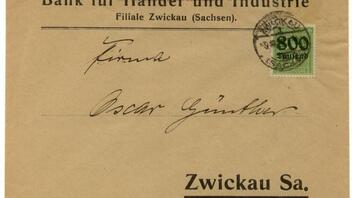 Bank für Handel und Industrie
Filiale Zwickau (Sachsen).
ZWICKAU
800
Tausend
Firma
Oscar Günther
Zwickau Sa.